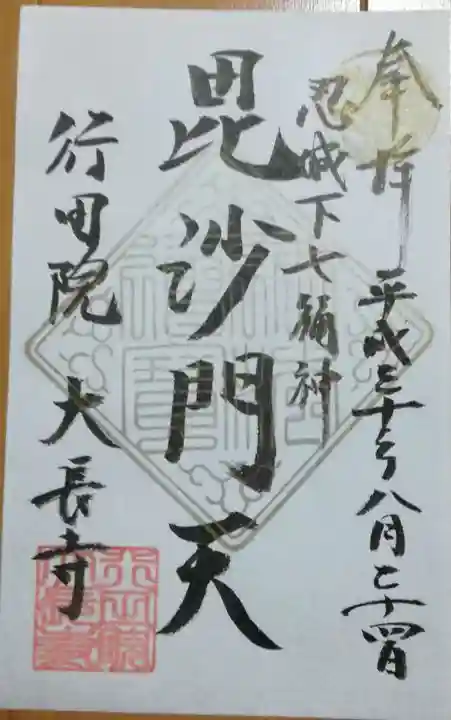 奉拝 平成三十年八月二十四日
忍城下七福神
毘沙門天
行田院 大長寺